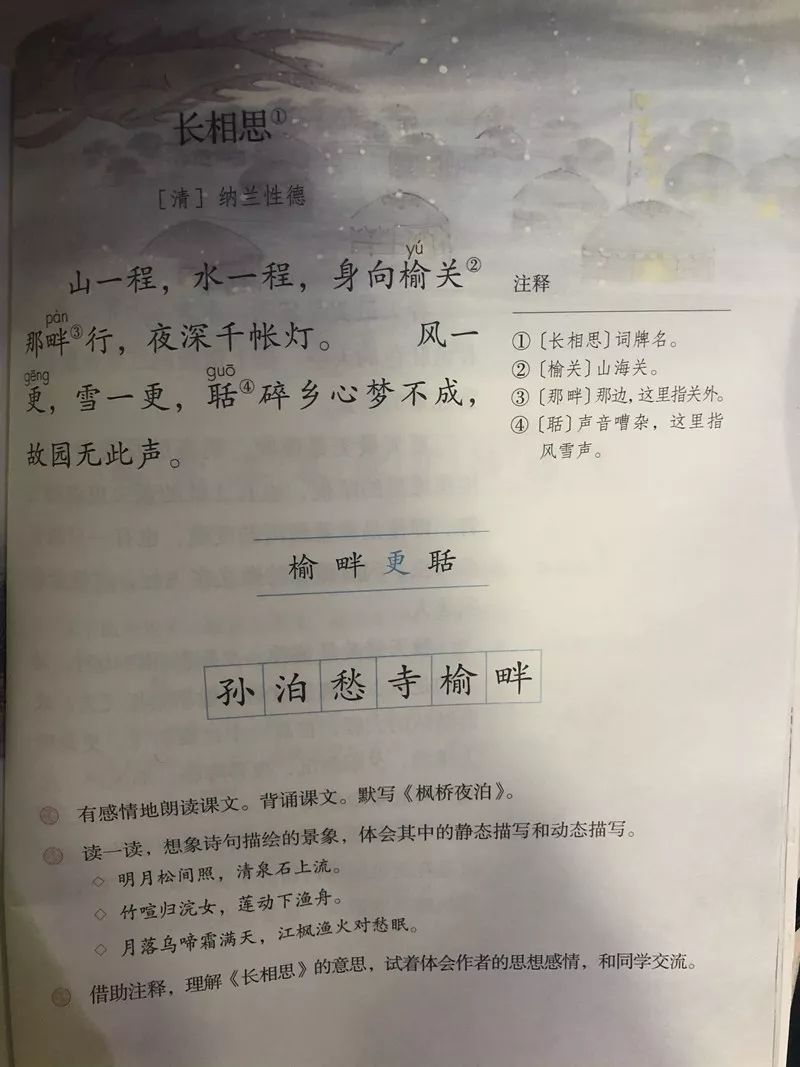 长相思①
[清] 纳兰性德
yú
山一程，水一程，身向榆关②
pàn
那畔③行，夜深千帐灯。 风一
gēng guō
更，雪一更，聒④碎乡心梦不成，
故园无此声。
注释
①〔长相思〕词牌名。
②〔榆关〕山海关。
③〔那畔〕那边，这里指关外。
④〔聒〕声音嘈杂，这里指
风雪声。
榆 畔 更 聒
孙 泊 愁 寺 榆 畔
有感情地朗读课文。背诵课文。默写《枫桥夜泊》。
读一读，想象诗句描绘的景象，体会其中的静态描写和动态描写。
◇ 明月松间照，清泉石上流。
◇ 竹喧归浣女，莲动下渔舟。
◇ 月落乌啼霜满天，江枫渔火对愁眠。
借助注释，理解《长相思》的意思，试着体会作者的思想感情，和同学交流。